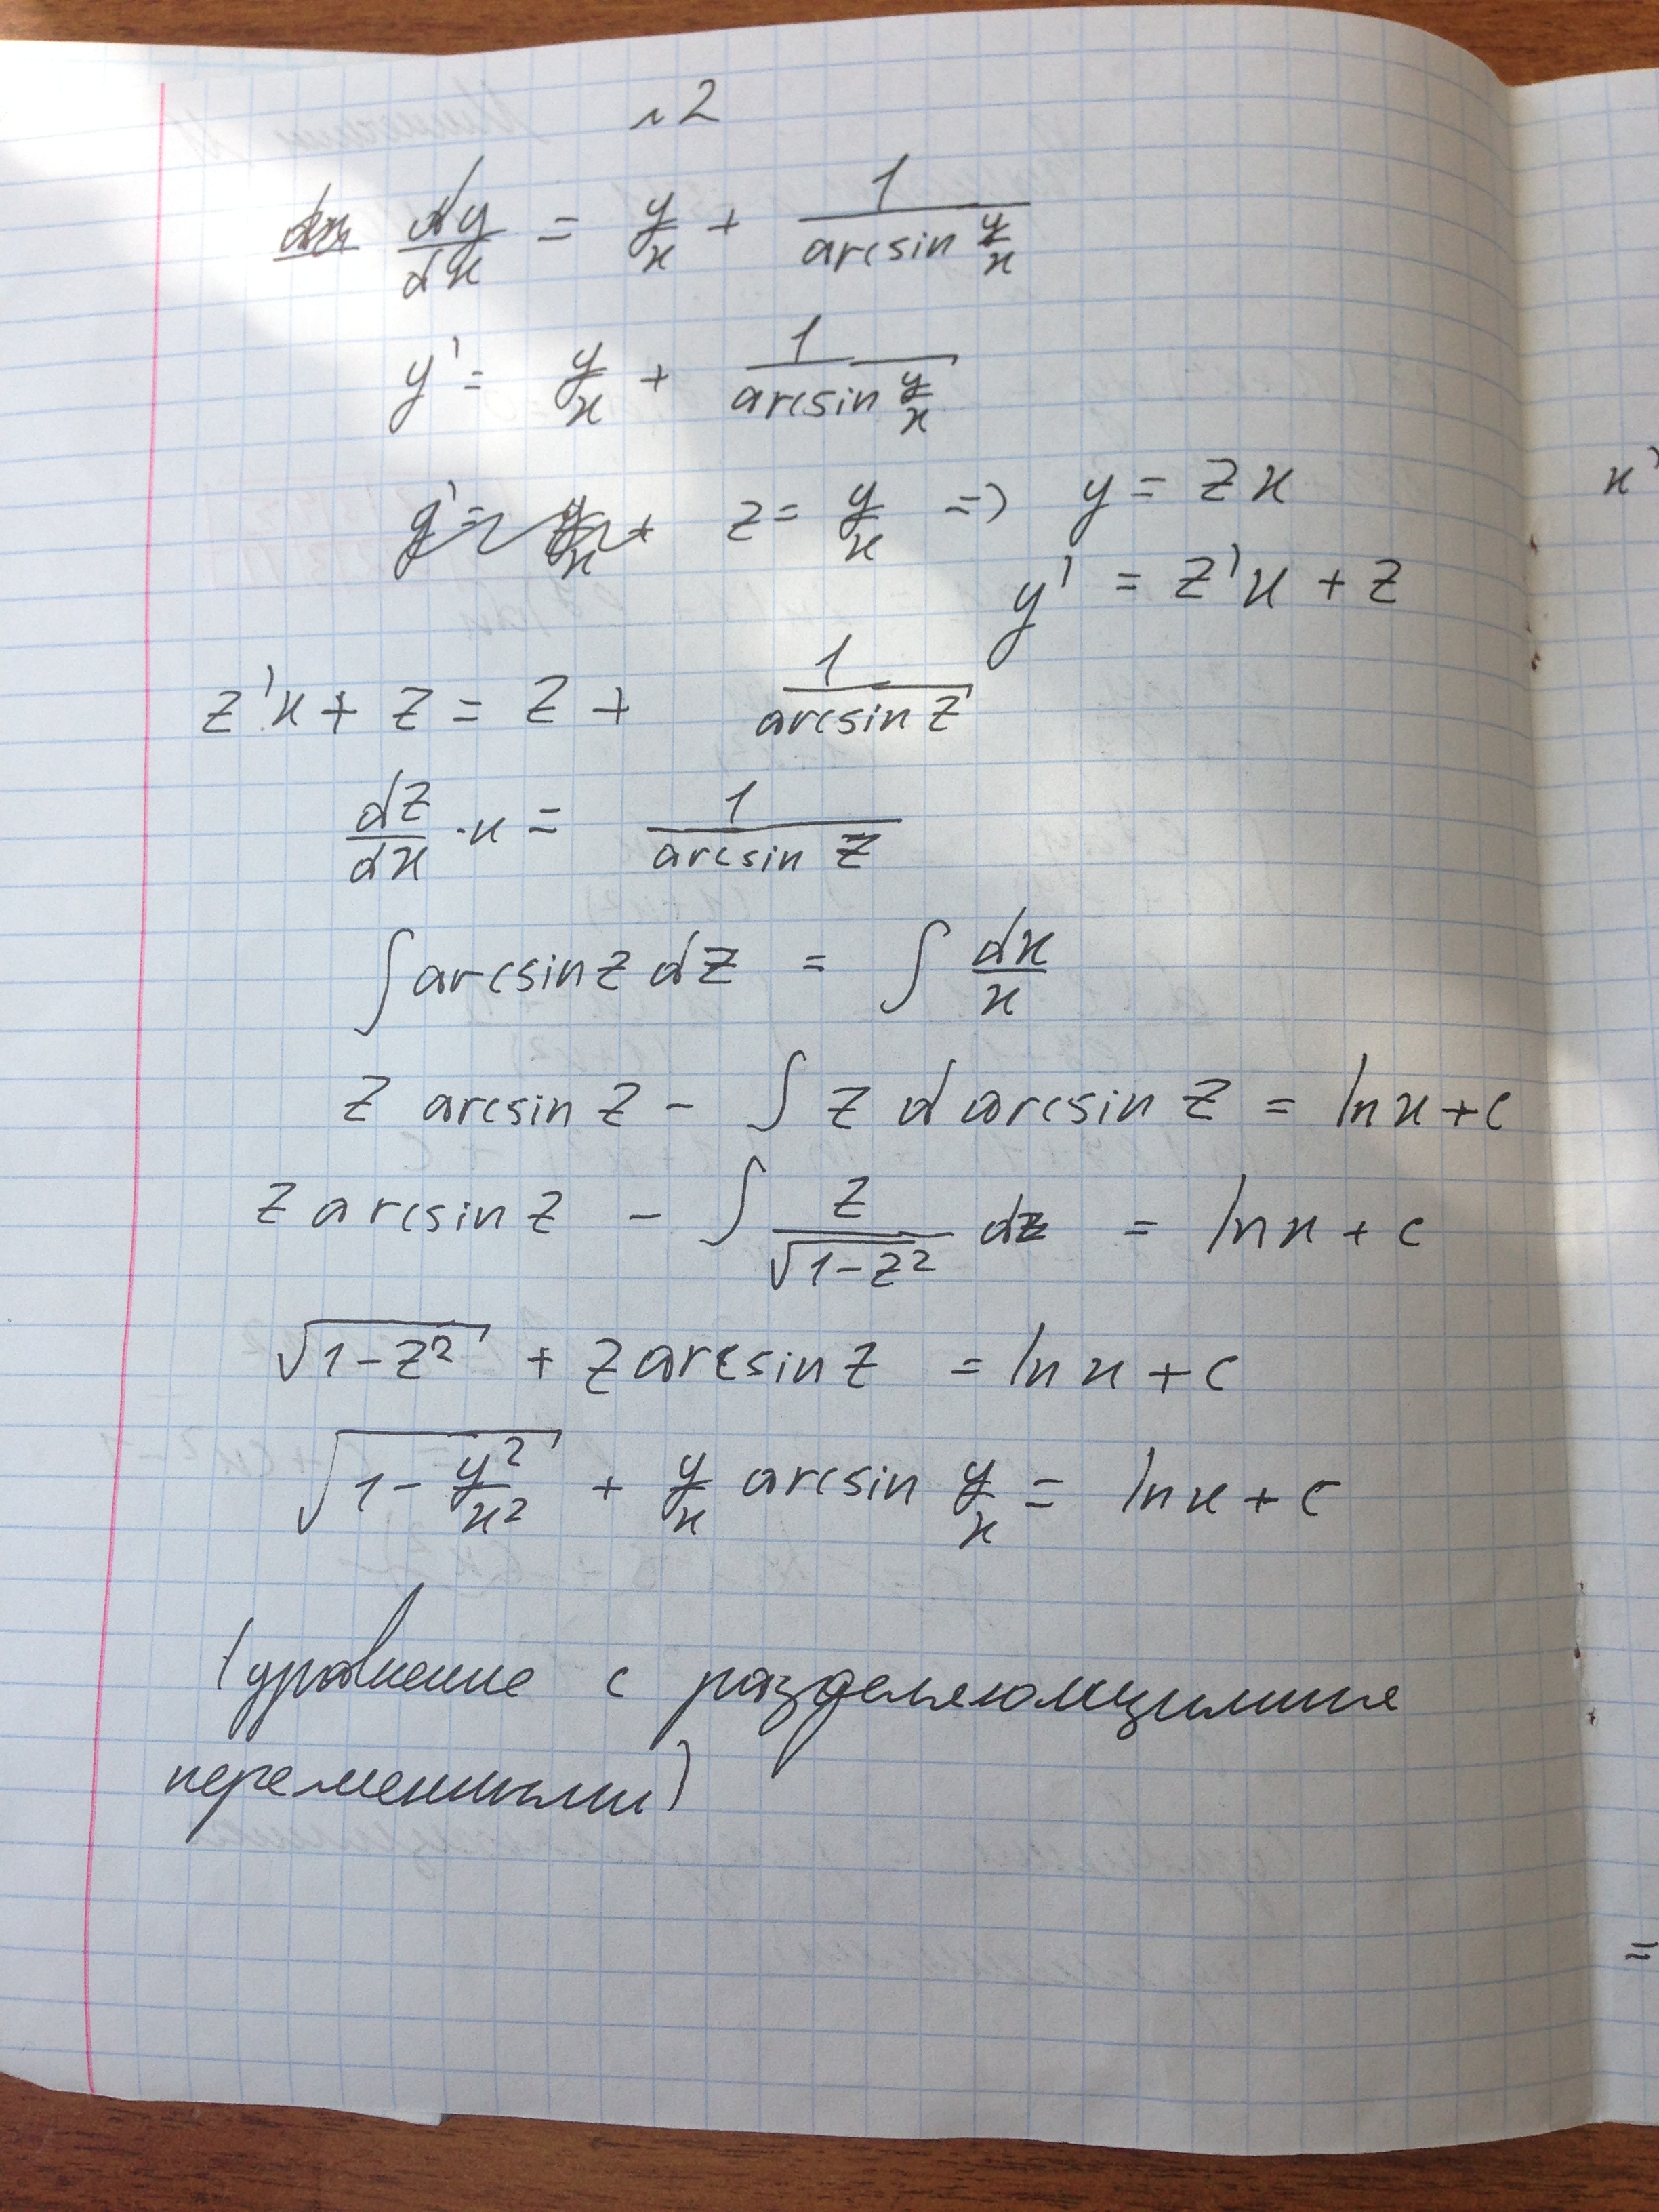 №2
dy/dx = y/x + 1/(arcsin y/x)
y' = y/x + 1/(arcsin y/x)
y' = y/x + z = y/x => y = zx
y' = z'x + z
z'x + z = z + 1/(arcsin z)
dz/dx · x = 1/(arcsin z)
∫ arcsin z dz = ∫ dx/x
z arcsin z - ∫ z d arcsin z = ln x + c
z arcsin z - ∫ z/√(1-z²) dz = ln x + c
√(1-z²) + z arcsin z = ln x + c
√(1 - y²/x²) + y/x arcsin y/x = ln x + c
(уравнение с разделяющимися
переменными)
x'
=